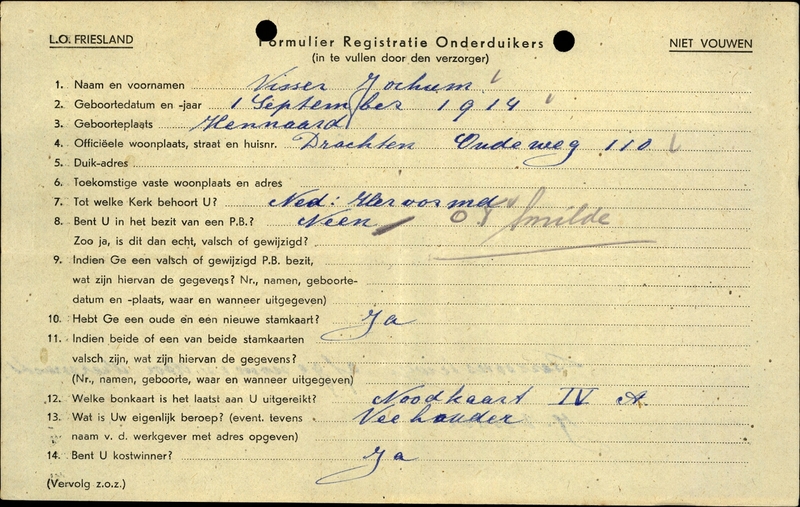 L.O. FRIESLAND
Formulier Registratie Onderduikers
NIET VOUWEN
(in te vullen door den verzorger)
1. Naam en voornamen Visser Jochum
2. Geboortedatum en -jaar 1 September 1914
3. Geboorteplaats Hennaard
4. Officiëele woonplaats, straat en huisnr. Drachten Oudeweg 110
5. Duik-adres
6. Toekomstige vaste woonplaats en adres
7. Tot welke Kerk behoort U? Ned: Hervormd
8. Bent U in het bezit van een P.B.? Neen Smilde
Zoo ja, is dit dan echt, valsch of gewijzigd?
9. Indien Ge een valsch of gewijzigd P.B. bezit,
wat zijn hiervan de gegevens? Nr., namen, geboorte-
datum en -plaats, waar en wanneer uitgegeven)
10. Hebt Ge een oude en een nieuwe stamkaart? Ja
11. Indien beide of een van beide stamkaarten
valsch zijn, wat zijn hiervan de gegevens?
(Nr., namen, geboorte, waar en wanneer uitgegeven)
12. Welke bonkaart is het laatst aan U uitgereikt? Noodkaart IV A.
13. Wat is Uw eigenlijk beroep? (event. tevens Veehouder
naam v. d. werkgever met adres opgeven)
14. Bent U kostwinner? Ja
(Vervolg z.o.z.)